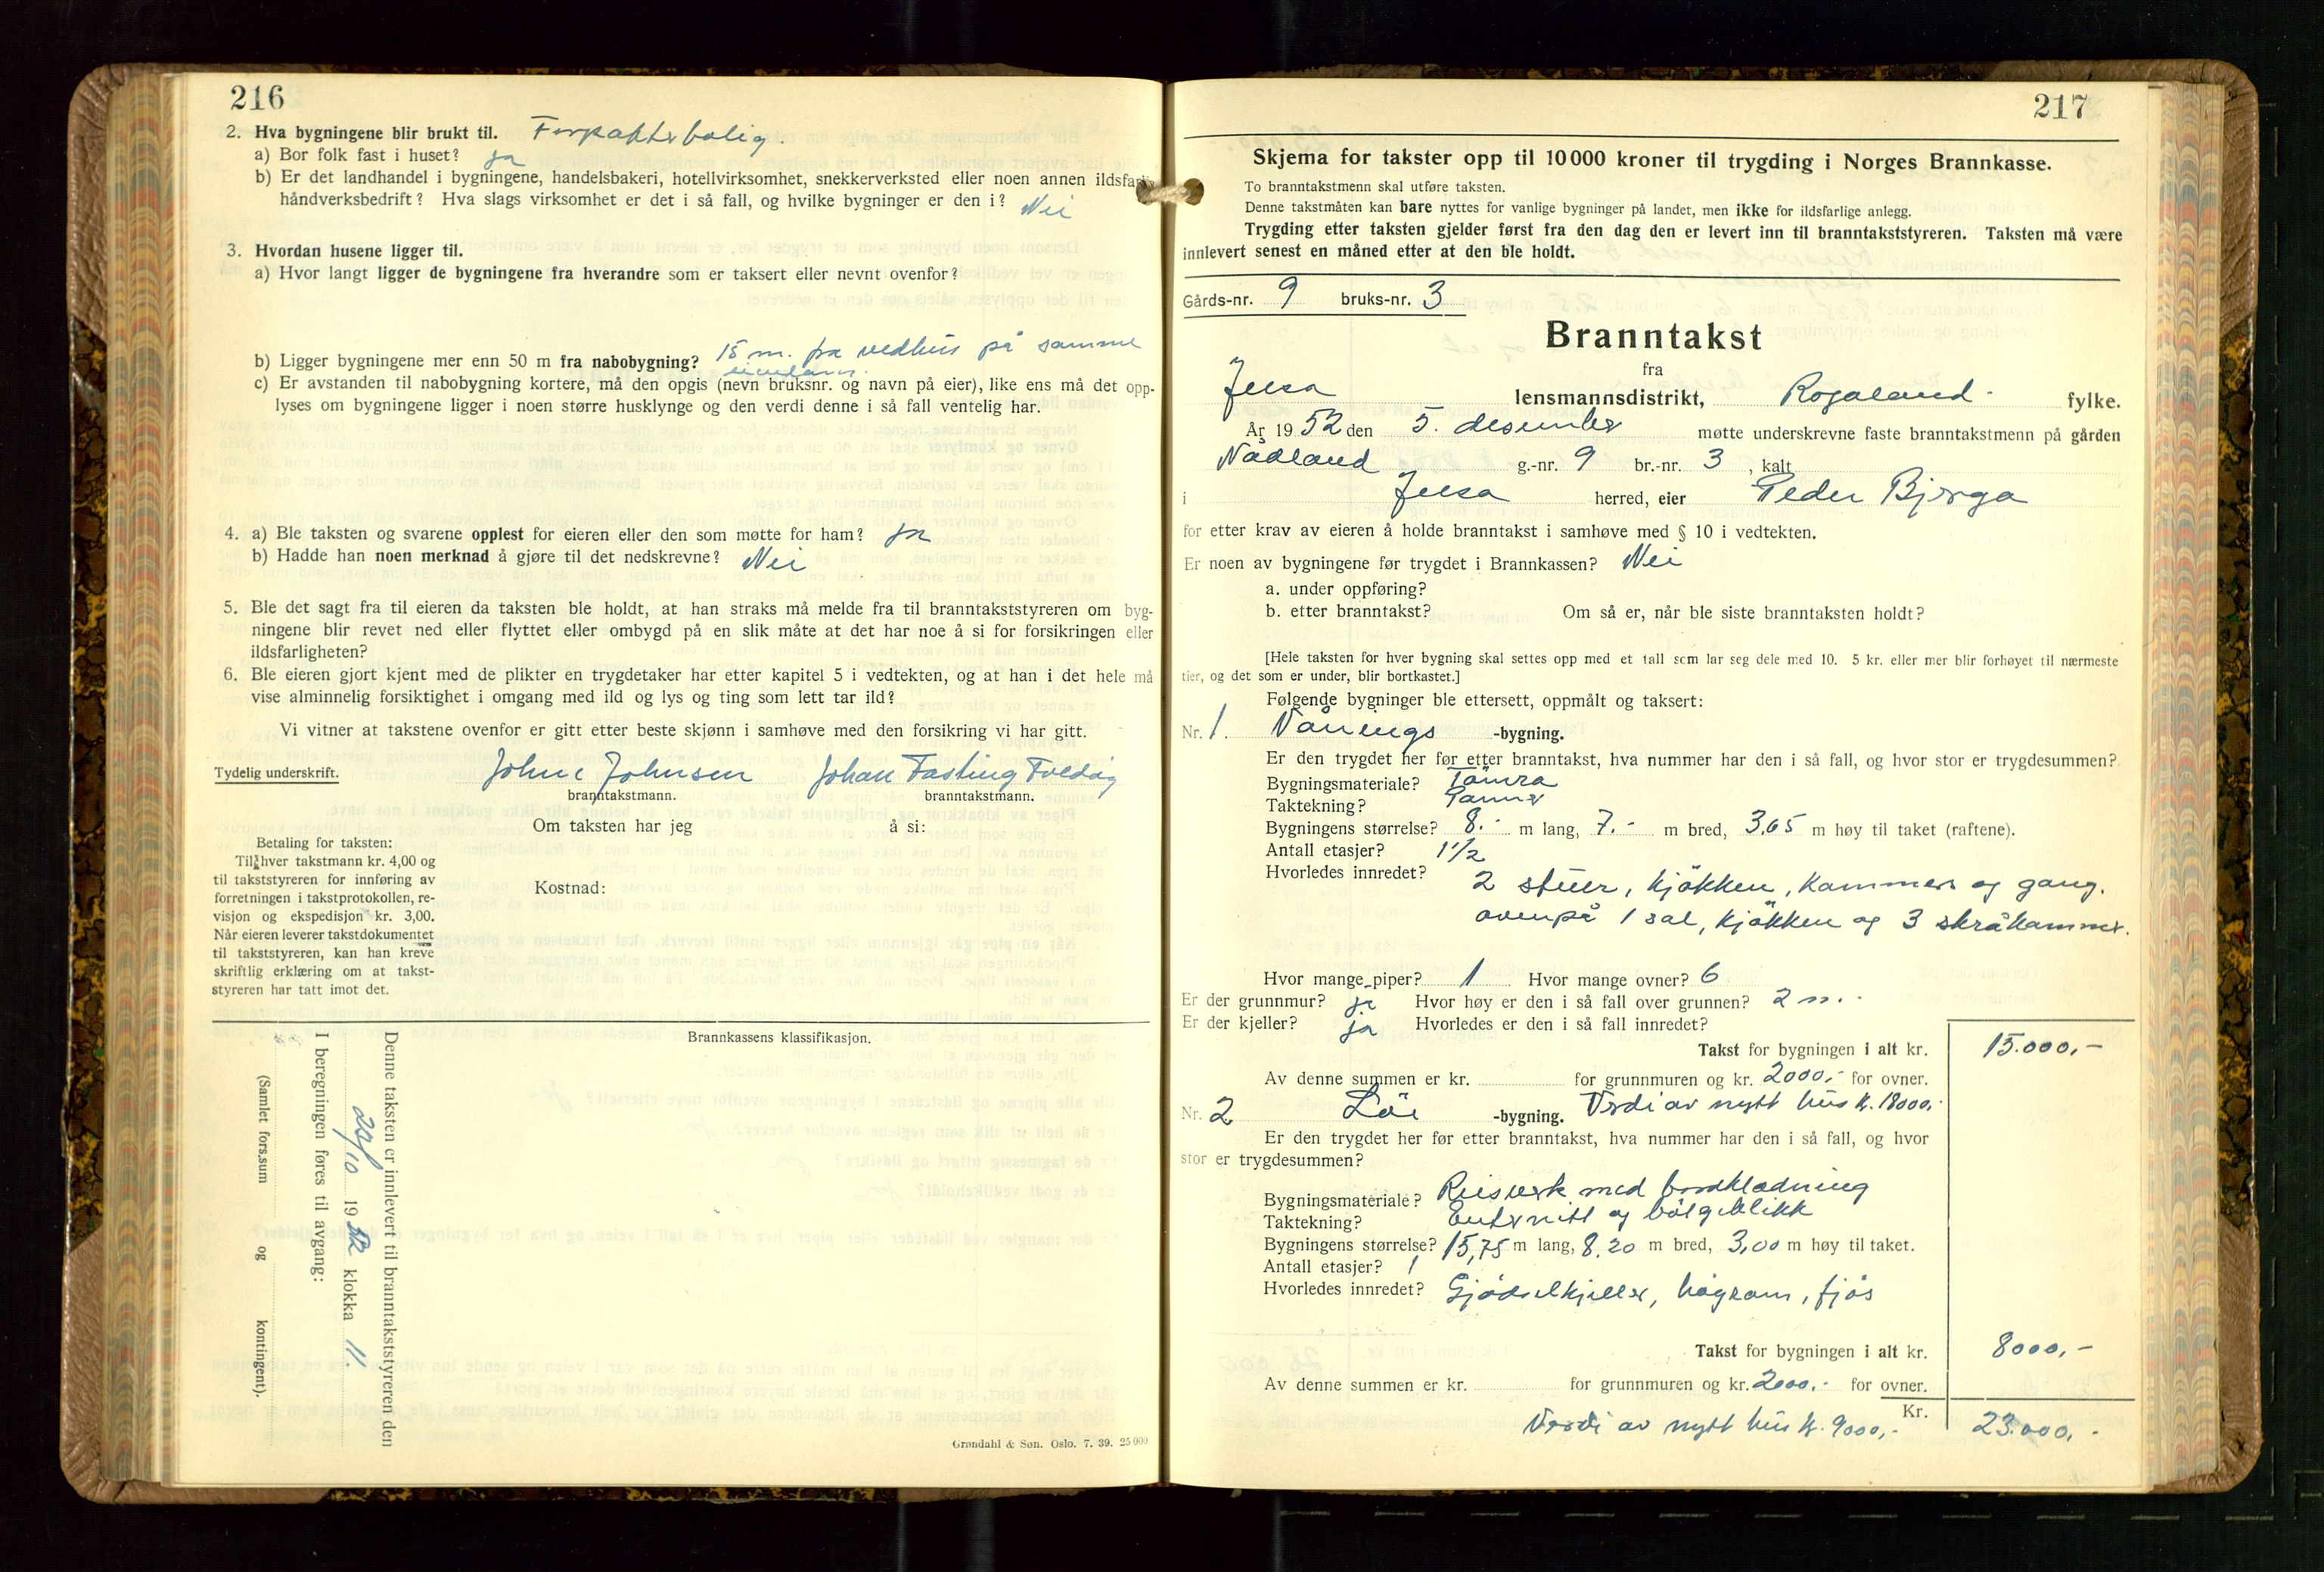 216
2. Hva bygningene blir brukt til. Forpakterbolig.
a) Bor folk fast i huset? ja
b) Er det landhandel i bygningene, handelsbakeri, hotellvirksomhet, snekkerverksted eller noen annen ildsfarlig
håndverksbedrift? Hva slags virksomhet er det i så fall, og hvilke bygninger er den i? Nei
3. Hvordan husene ligger til.
a) Hvor langt ligger de bygningene fra hverandre som er taksert eller nevnt ovenfor?
b) Ligger bygningene mer enn 50 m fra nabobygning? 15 m. fra vedhus på samme
eiendom.
c) Er avstanden til nabobygning kortere, må den opgis (nevn bruksnr. og navn på eier), like ens må det opp-
lyses om bygningene ligger i noen større husklynge og den verdi denne i så fall ventelig har.
4. a) Ble taksten og svarene opplest for eieren eller den som møtte for ham? ja
b) Hadde han noen merknad å gjøre til det nedskrevne? Nei
5. Ble det sagt fra til eieren da taksten ble holdt, at han straks må melde fra til branntakststyreren om byg-
ningene blir revet ned eller flyttet eller ombygd på en slik måte at det har noe å si for forsikringen eller
ildsfarligheten?
6. Ble eieren gjort kjent med de plikter en trygdetaker har etter kapitel 5 i vedtekten, og at han i det hele må
vise alminnelig forsiktighet i omgang med ild og lys og ting som lett tar ild?
Vi vitner at takstene ovenfor er gitt etter beste skjønn i samhøve med den forsikring vi har gitt.
Tydelig underskrift. John E Johnsen Johan Fasting Foldøy
branntakstmann. branntakstmann.
Om taksten har jeg å si:
Betaling for taksten:
Til hver takstmann kr. 4,00 og
til takststyreren for innføring av
forretningen i takstprotokollen, re-
visjon og ekspedisjon kr. 3,00.
Når eieren leverer takstdokumentet
til takststyreren, kan han kreve
skriftlig erklæring om at takst-
styreren har tatt imot det.
Kostnad:
Brannkassens klassifikasjon.
Denne taksten er innlevert til branntakststyreren den
29/10 1952 klokka 11.
I beregningen føres til avgang:
(Samlet fors.sum og kontingent).
Grøndahl & Søn. Oslo. 7. 39. 25 000
217
Skjema for takster opp til 10 000 kroner til trygding i Norges Brannkasse.
To branntakstmenn skal utføre taksten.
Denne takstmåten kan bare nyttes for vanlige bygninger på landet, men ikke for ildsfarlige anlegg.
Trygding etter taksten gjelder først fra den dag den er levert inn til branntakststyreren. Taksten må være
innlevert senest en måned etter at den ble holdt.
Gårds-nr. 9 bruks-nr. 3
Branntakst
fra
Jelsa lensmannsdistrikt, Rogaland fylke.
År 1952 den 5. desember møtte underskrevne faste branntakstmenn på gården
Nådland g.-nr. 9 br.-nr. 3, kalt
i Jelsa herred, eier Peder Bjerga
for etter krav av eieren å holde branntakst i samhøve med § 10 i vedtekten.
Er noen av bygningene før trygdet i Brannkassen? Nei
a. under oppføring?
b. etter branntakst? Om så er, når ble siste branntaksten holdt?
[Hele taksten for hver bygning skal settes opp med et tall som lar seg dele med 10. 5 kr. eller mer blir forhøyet til nærmeste
tier, og det som er under, blir bortkastet.]
Følgende bygninger ble ettersett, oppmålt og taksert:
Nr. 1. Vånings -bygning.
Er den trygdet her før etter branntakst, hva nummer har den i så fall, og hvor stor er trygdesummen?
Bygningsmateriale? Tømra
Taktekning? Panner
Bygningens størrelse? 8.- m lang, 7.- m bred, 3,65 m høy til taket (raftene).
Antall etasjer? 1 1/2
Hvorledes innredet? 2 stuer, kjøkken, kammers og gang.
ovenpå 1 sal, kjøkken og 3 skråkammer.
Hvor mange piper? 1 Hvor mange ovner? 6
Er der grunnmur? ja Hvor høy er den i så fall over grunnen? 2 m.
Er der kjeller? ja Hvorledes er den i så fall innredet?
Takst for bygningen i alt kr. 15.000,-
Av denne summen er kr. for grunnmuren og kr. 2000,- for ovner.
Verdi av nytt hus kr. 18000,-
Nr. 2 Løe -bygning.
Er den trygdet her før etter branntakst, hva nummer har den i så fall, og hvor
stor er trygdesummen?
Bygningsmateriale? Reisverk med bordklædning
Taktekning? Enternitt og bølgeblikk
Bygningens størrelse? 15,75 m lang, 8,20 m bred, 3,00 m høy til taket.
Antall etasjer? 1
Hvorledes innredet? Gjødselkjeller, høyrom, fjøs
Takst for bygningen i alt kr. 8000,-
Av denne summen er kr. for grunnmuren og kr. 2000,- for ovner.
Verdi av nytt hus kr. 9000,- Kr. 23.000,-